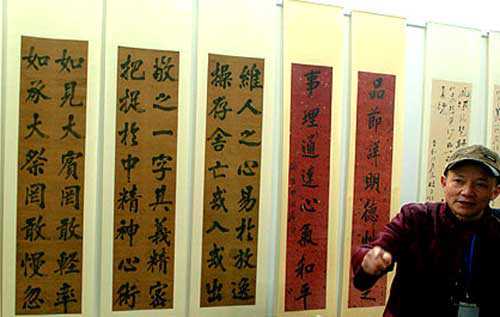 品節詳明德性
事理通達心氣和平
維人之心易於放逸
操存舍亡或入或出
敬之一字其義精密
把捉於中精神心術
如見大賓罔敢輕率
如承大祭罔敢慢忽